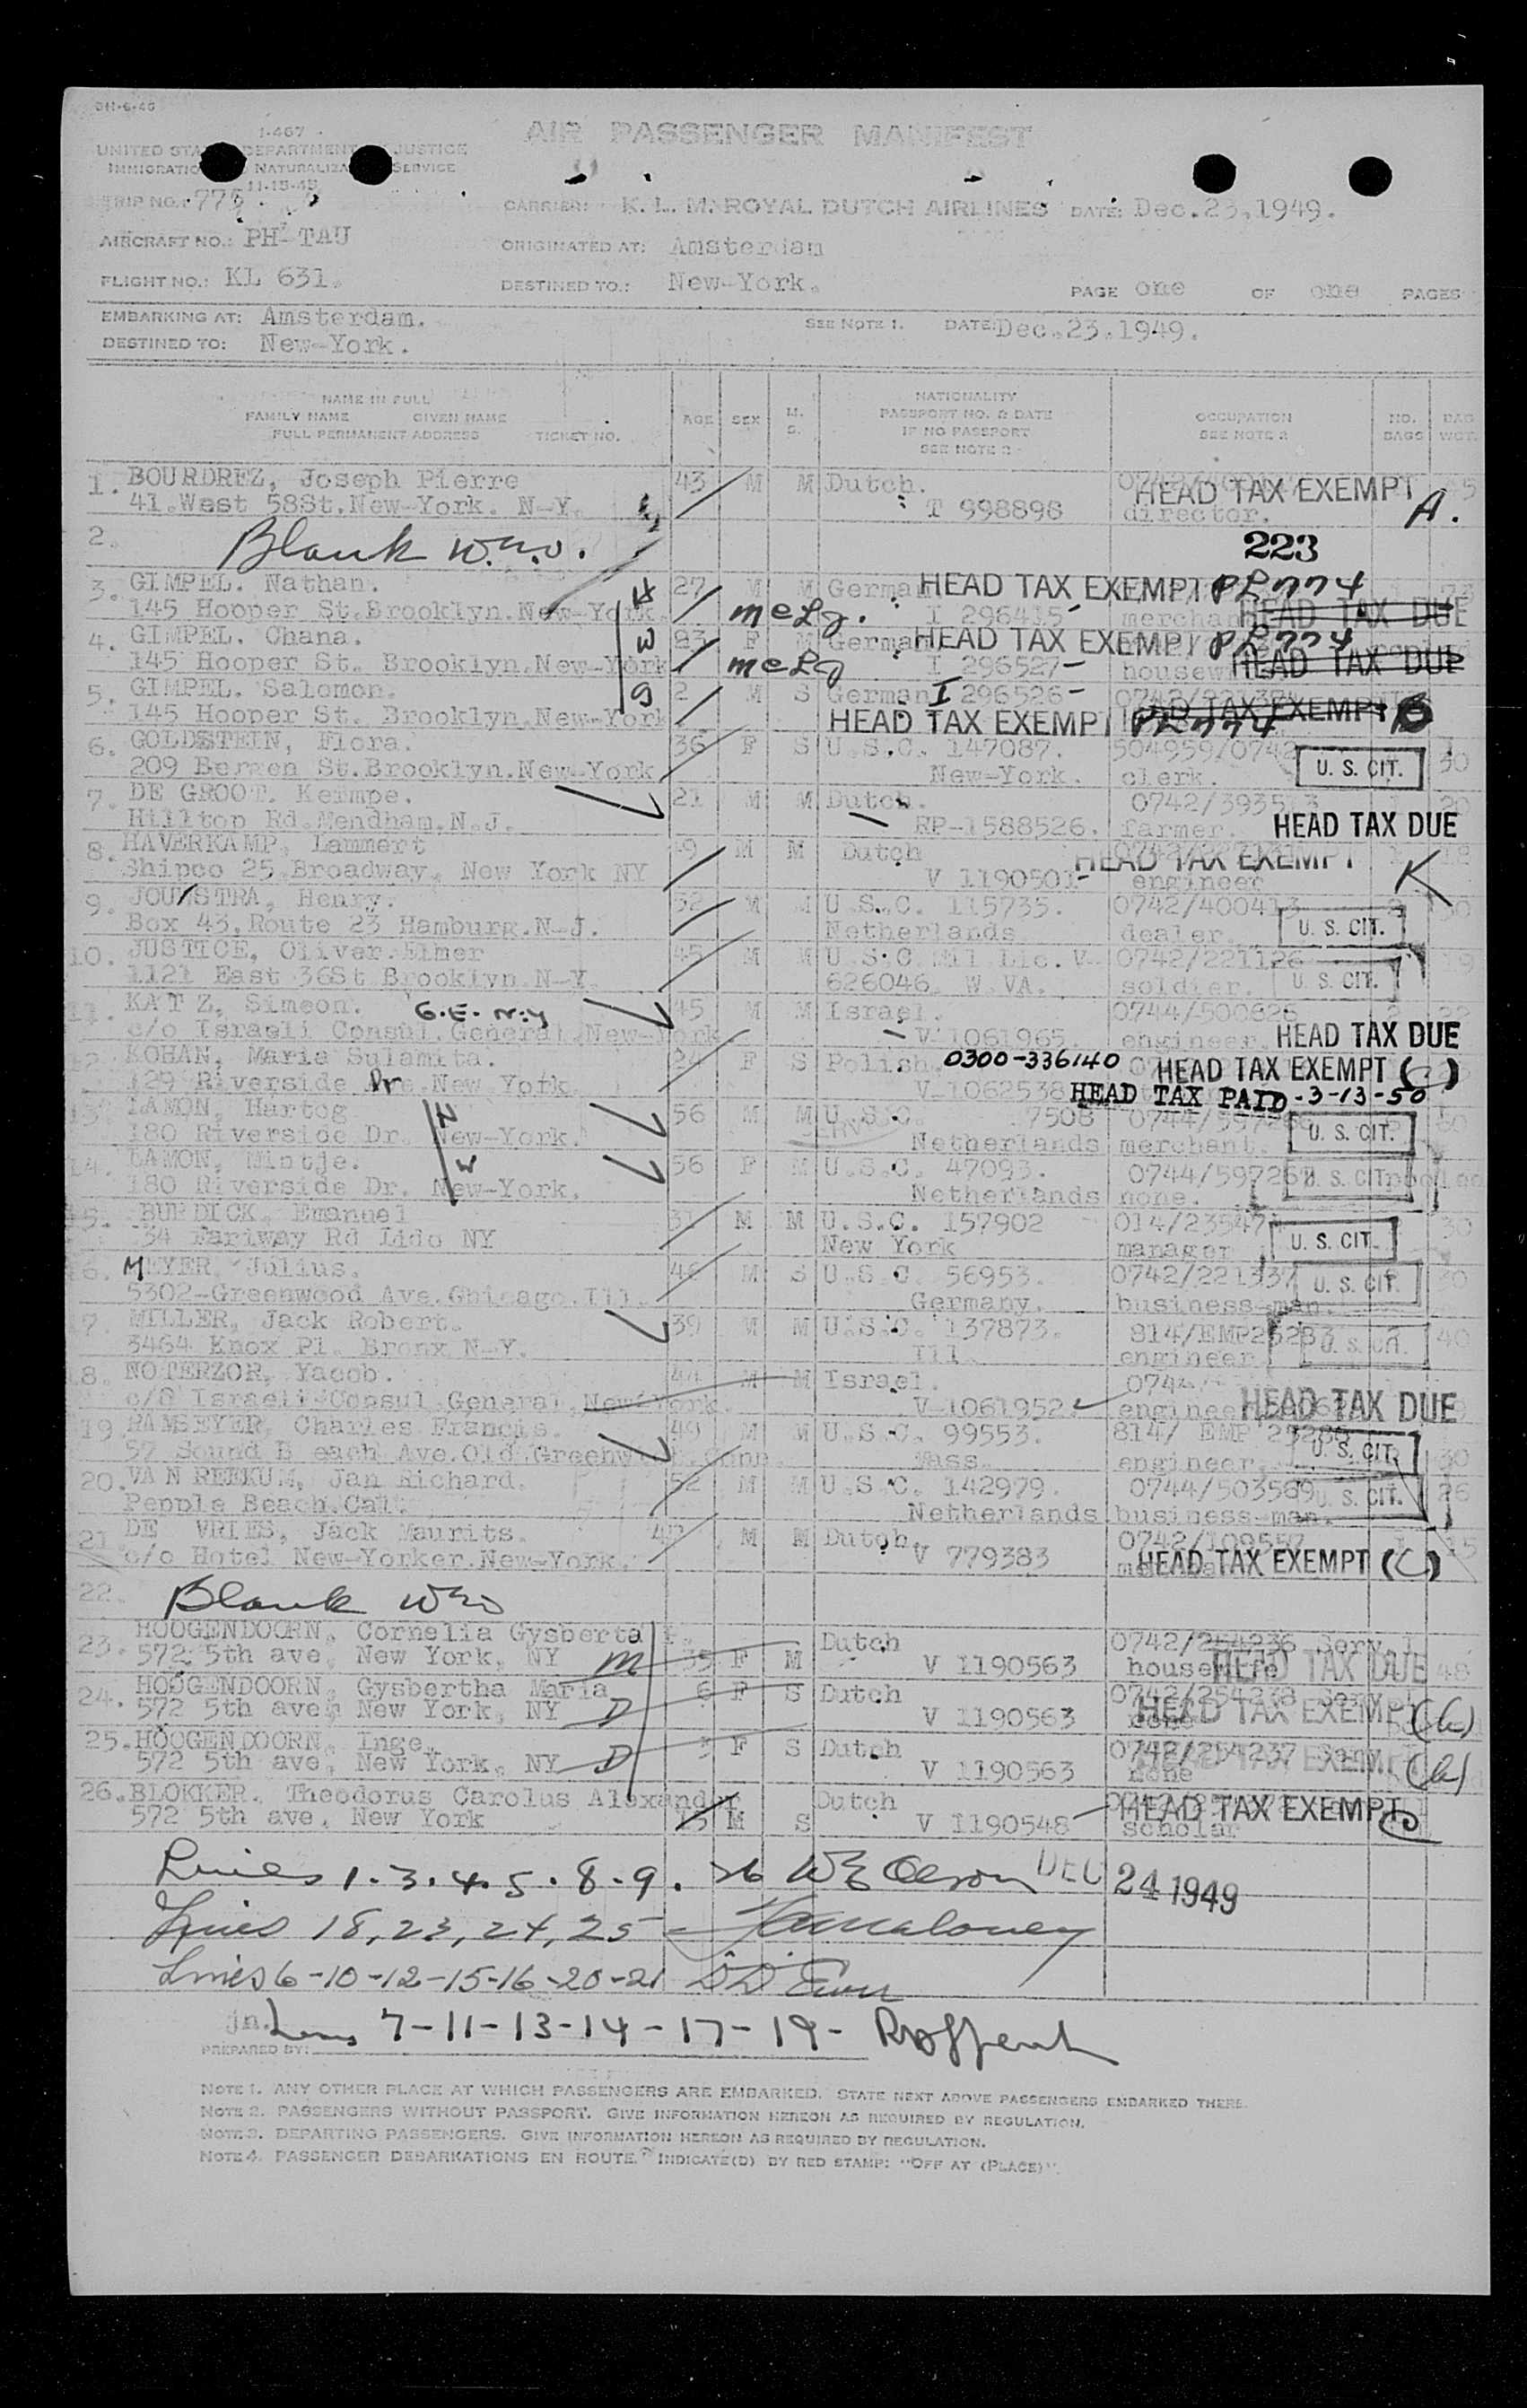 I-467
AIR PASSENGER MANIFEST
UNITED STATES DEPARTMENT JUSTICE
IMMIGRATION NATURALIZATION SERVICE
11-15-45
TRIP NO.: 775
CARRIER: K. L. M. ROYAL DUTCH AIRLINES DATE: Dec.23,1949.
AIRCRAFT NO.: PH-TAU ORIGINATED AT: Amsterdam
FLIGHT NO.: KL 631. DESTINED TO.: New-York. PAGE one OF one PAGES
EMBARKING AT: Amsterdam. SEE NOTE 1. DATE: Dec.23.1949.
DESTINED TO: New-York.
NAME IN FULL
FAMILY NAME GIVEN NAME
FULL PERMANENT ADDRESS TICKET NO.
AGE SEX M. S.
NATIONALITY
PASSPORT NO. & DATE
IF NO PASSPORT
SEE NOTE 2
OCCUPATION
SEE NOTE 2
NO. BAGS BAG WGT.
1. BOURDREZ, Joseph Pierre 43 M M Dutch. HEAD TAX EXEMPT
41.West 58St.New-York. N-Y. T 998898 director. A.
2. Blank 223
3. GIMPEL. Nathan. 27 M M German HEAD TAX EXEMPT PL774
145 Hooper St.Brooklyn.New-York. I 296415 merchant HEAD TAX DUE
4. GIMPEL. Chana. F M German HEAD TAX EXEMPT PL774
145 Hooper St. Brooklyn.New-York I 296527- housewife HEAD TAX DUE
5. GIMPEL. Salomon. 2 M S German I 296526-
145 Hooper St. Brooklyn.New-York. HEAD TAX EXEMPT PL774 B
6. GOLDSTEIN, Flora. 36 F S U.S.C. 147087. 504959/0742
209 Bergen St.Brooklyn.New-York New-York. clerk. U. S. CIT. 30
7. DE GROOT. Keimpe. 21 M M Dutch. 20
Hilltop Rd.Mendham.N.J. RP-1588526. farmer. HEAD TAX DUE
8. HAVERKAMP, Lammert M M Dutch HEAD TAX EXEMPT 18
Shipco 25 Broadway, New York NY V 1190501- engineer K
9. JOUSTRA, Henry. 52 M M U.S.C. 115735. 0742/400413
Box 43,Route 23 Hamburg.N-J. Netherlands dealer. U. S. CIT.
10. JUSTICE, Oliver.Elmer 45 M M U.S.C. Mil Lic. V- 0742/221126 19
1121 East 36St Brooklyn.N-Y. 626046. W.VA. soldier. U. S. CIT.
11. KATZ, Simeon. G.E. N.Y 45 M M Israel. 0744/500626
c/o Israeli Consul.General.New-York V 1061965 engineer. HEAD TAX DUE
12. KOHAN, Marie Sulamita. 24 F S Polish 0300-336140 HEAD TAX EXEMPT (C)
129 Riverside Dr. New York. V 1062538 HEAD TAX PAID -3-13-50
13. LAMON, Hartog 56 M M U.S.C. 7508
180 Riverside Dr. New-York. Netherlands merchant. U. S. CIT.
14. LAMON, Mintje. 56 F M U.S.C. 47093. 0744/597267
180 Riverside Dr. New-York. Netherlands none. U. S. CIT.
15. BURDICK, Emanuel 31 M M U.S.C. 157902 30
34 Fariway Rd Lido NY New York manager U. S. CIT.
16. MEYER, Julius. 46 M S U.S.C. 56953. 0742/221337 30
5302-Greenwood Ave.Chicago.Ill. Germany. business-man. U. S. CIT.
17. MILLER, Jack Robert. 39 M M U.S.C. 137873. 40
3464 Knox Pl. Bronx N-Y. Ill. engineer U. S. CIT.
18. NOTERZOR, Yacob. 44 M M Israel.
c/o Israeli Consul General.New York. V-1061952 engineer HEAD TAX DUE
19. RAMSEYER, Charles Francis. 49 M M U.S.C. 99553. 814/ EMP
57 Sound Beach Ave.Old Greenwich Conn. Mass. engineer. U. S. CIT. 30
20. VAN REEKUM, Jan Richard. 52 M M U.S.C. 142979. 0744/503569 26
Pepple Beach.Cal. Netherlands business-man. U. S. CIT.
21. DE VRIES, Jack Maurits. M M Dutch. 15
c/o Hotel New-Yorker.New-York. V 779383 HEAD TAX EXEMPT (C)
22. Blank
23. HOOGENDOORN, Cornelia Gysberta Dutch 0742/254236 Serv.
572 5th ave, New York, NY M 35 F M V 1190563 housewife HEAD TAX DUE 48
24. HOOGENDOORN, Gysbertha Maria 6 F S Dutch 0742/254238 Serv
572 5th ave, New York, NY D V 1190563 none HEAD TAX EXEMPT
25. HOOGENDOORN, Inge. 3 F S Dutch 0742/254237 Serv
572 5th ave, New York, NY D V 1190563 none HEAD TAX EXEMPT
26. BLOKKER, Theodorus Carolus Alexander Dutch HEAD TAX EXEMPT
572 5th ave, New York M S V 1190548 scholar
Lines 1.3.4.5.8.9. 26 W Olson DEC 24 1949
Lines 18,23,24,25- Maloney
Lines 6-10-12-15-16-20-21
jn. Lines 7-11-13-14-17-19-
PREPARED BY:
NOTE 1. ANY OTHER PLACE AT WHICH PASSENGERS ARE EMBARKED. STATE NEXT ABOVE PASSENGERS EMBARKED THERE.
NOTE 2. PASSENGERS WITHOUT PASSPORT. GIVE INFORMATION HEREON AS REQUIRED BY REGULATION.
NOTE 3. DEPARTING PASSENGERS. GIVE INFORMATION HEREON AS REQUIRED BY REGULATION.
NOTE 4. PASSENGER DEBARKATIONS EN ROUTE. INDICATE(D) BY RED STAMP: "OFF AT (PLACE)".